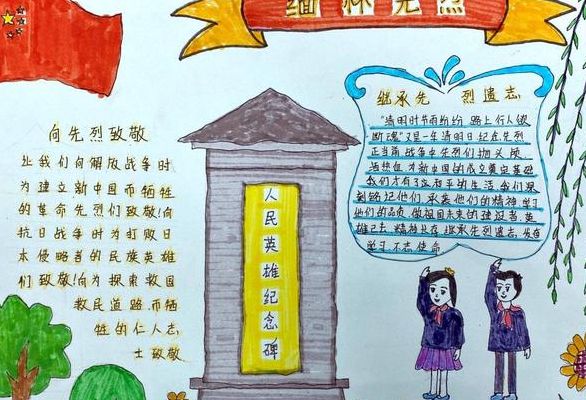 缅怀先烈
向先烈致敬
让我们向解放战争时
为建立新中国而牺牲
的革命先烈们致敬!向
抗日战争时为打败日
本侵略者的民族英雄
们致敬!向为探索救国
救民道路而牺
牲的仁人志
士致敬
人民英雄纪念碑
继承先烈遗志
"清明时节雨纷纷,路上行人欲
断魂"又是一年清明日,纪念先烈
正当前,战争中先烈们抛头颅
洒热血,为新中国的成立奠定基础
我们才有了这和平的生活,我们要
铭记他们,承袭他们的精神,学习
他们的品质,做祖国未来的建设者,英
雄已去,精神长存,继承先烈遗志,发奋
学习,不忘使命